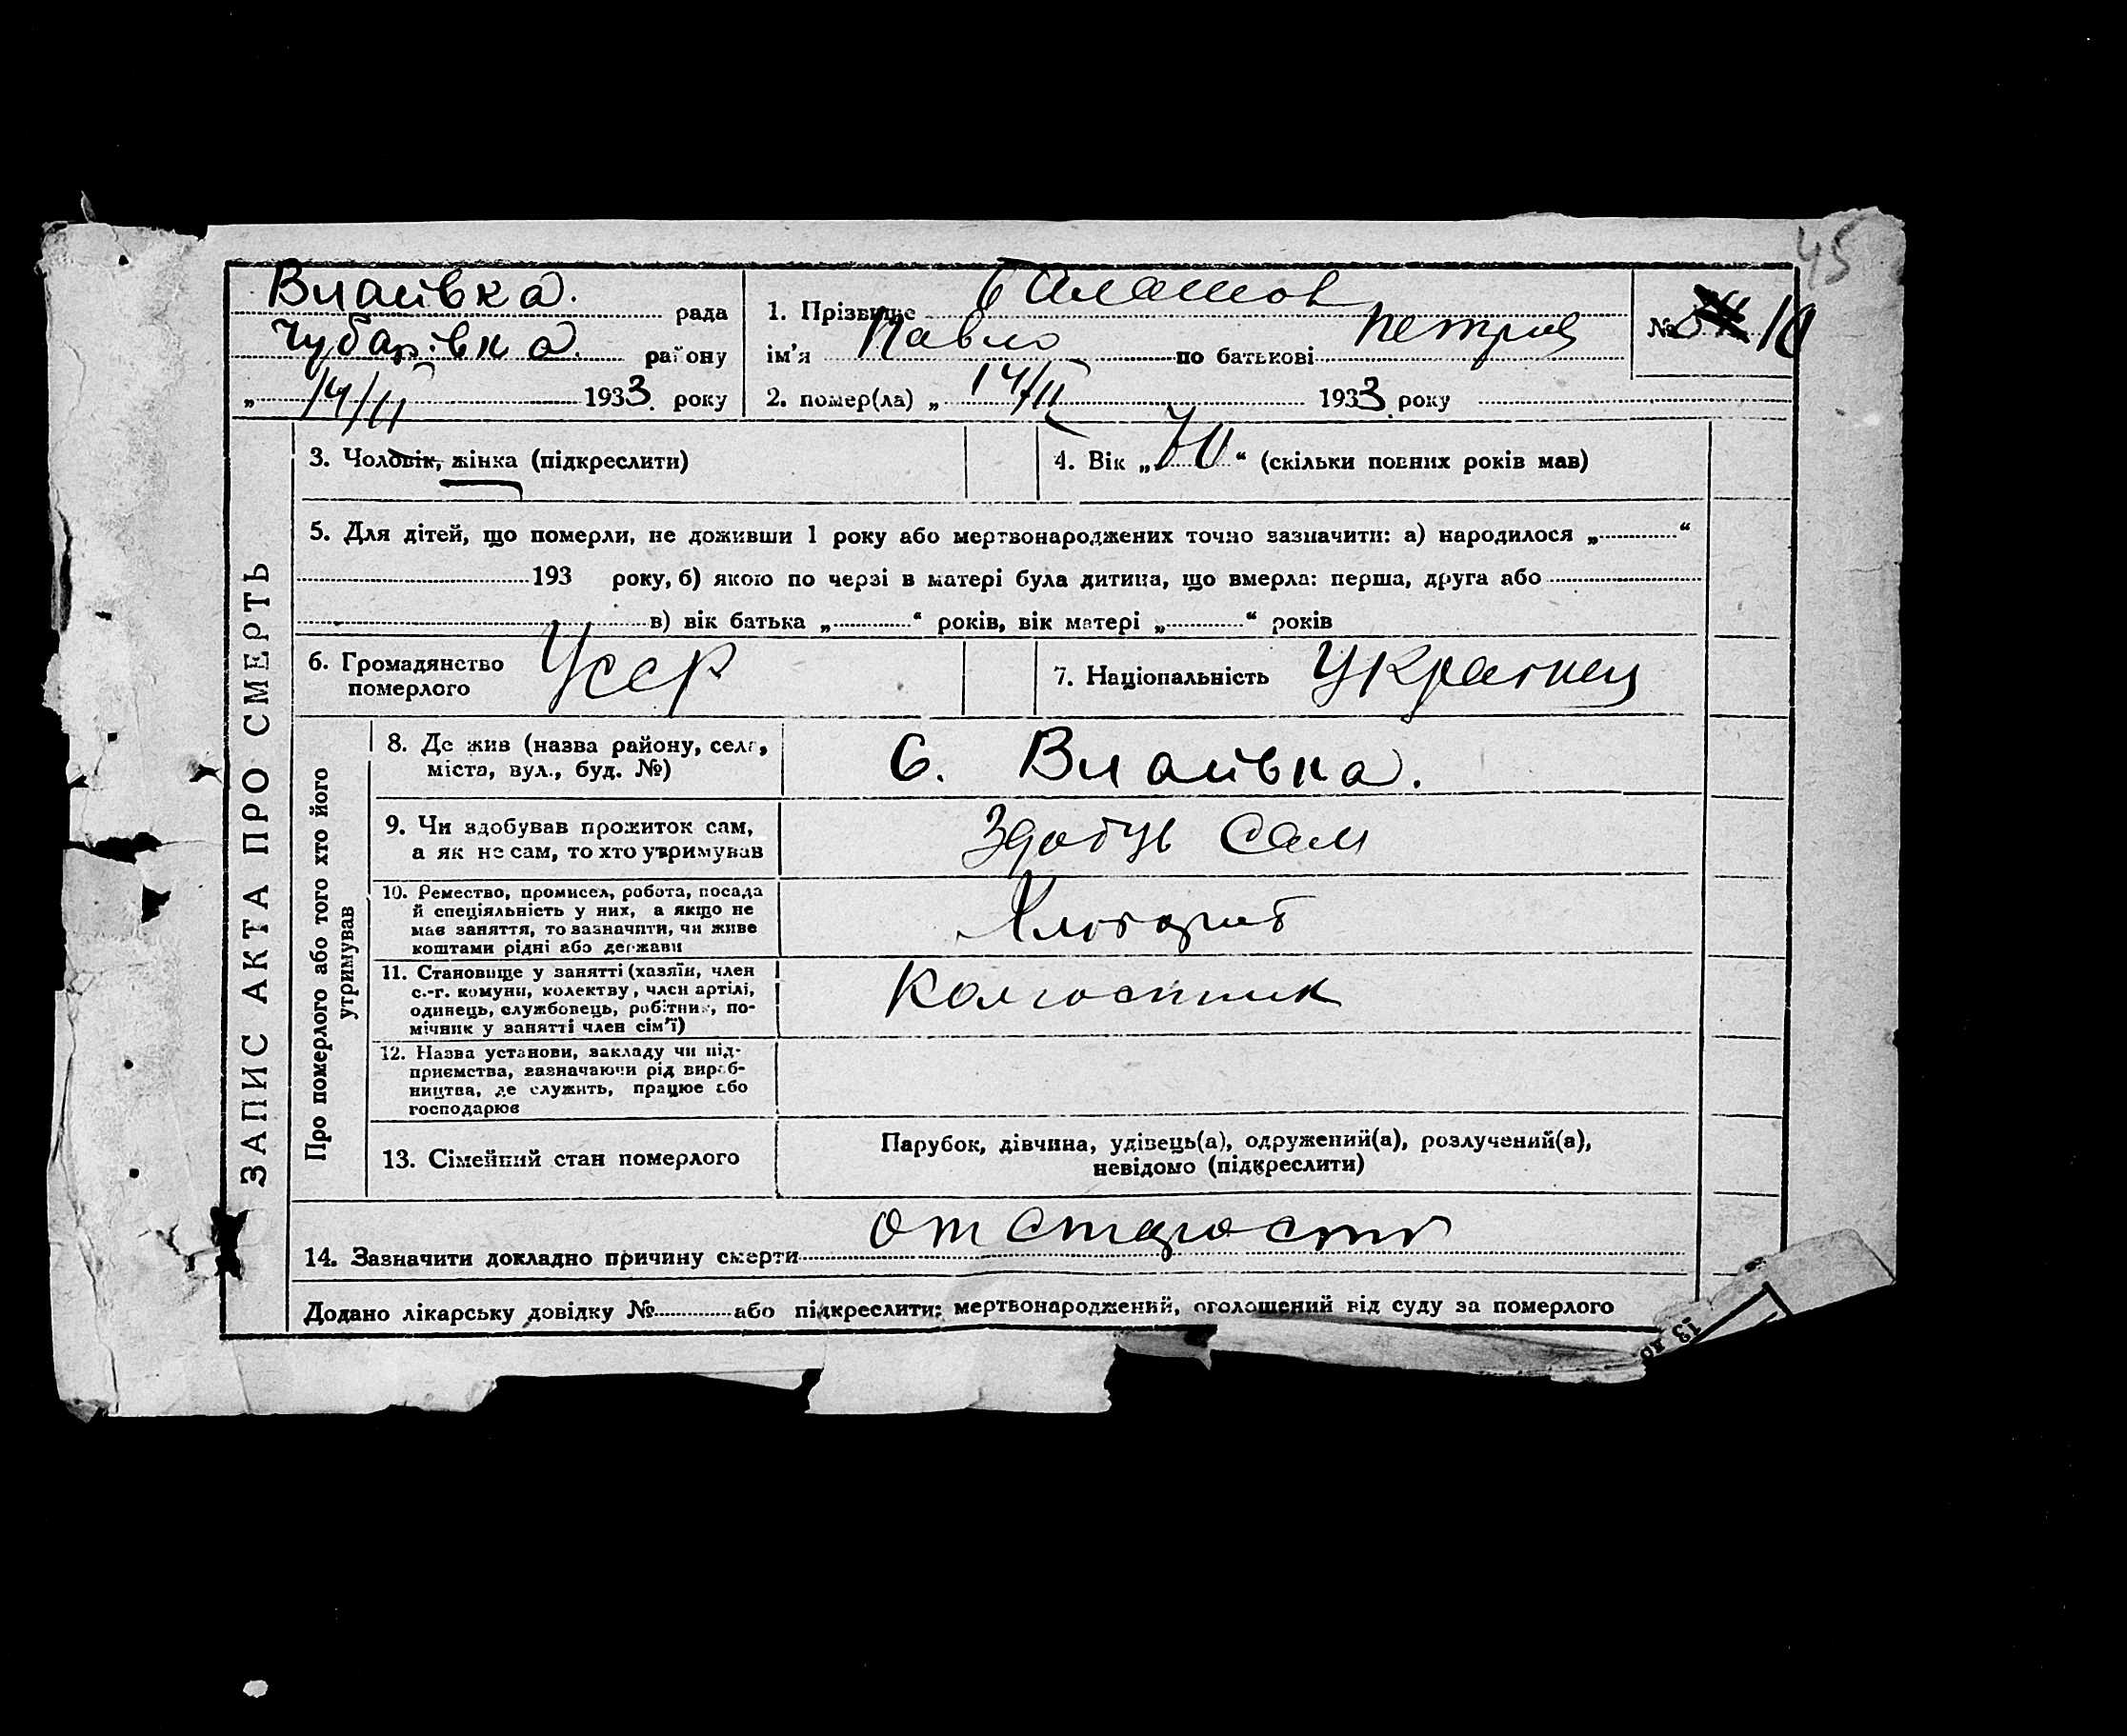 45
Влаївка. рада
Чубарівка. району
„ 14/II 1933 року
1. Прізвище Балашов
ім'я Павло по батькові Петров
2. помер(ла) „ 14/II 1933 року
№ 10
ЗАПИС АКТА ПРО СМЕРТЬ
3. Чоловік, жінка (підкреслити)
4. Вік „70“ (скільки повних років мав)
5. Для дітей, що померли, не доживши 1 року або мертвонароджених точно зазначити: а) народилося „ “
193 року, б) якою по черзі в матері була дитина, що вмерла: перша, друга або
в) вік батька „ “ років, вік матері „ “ років
6. Громадянство
померлого
Усср
7. Національність Украінец
Про померлого або того хто його
утримував
8. Де жив (назва району, села,
міста, вул., буд. №)
С. Влаївка.
9. Чи здобував прожиток сам,
а як не сам, то хто утримував
Здобув Сам
10. Ремество, промисел, робота, посада
й спеціяльність у них, а якщо не
має заняття, то зазначити, чи живе
коштами рідні або держави
Хлібороб
11. Становище у занятті (хазяїн, член
с.-г. комуни, колективу, член артілі,
одинець, службовець, робітник, по-
мічник у занятті член сім'ї)
Колгоспник
12. Назва установи, закладу чи під-
приємства, зазначаючи рід вироб-
ництва, де служить, працює або
господарює
13. Сімейний стан померлого
Парубок, дівчина, удівець(а), одружений(а), розлучений(а),
невідомо (підкреслити)
14. Зазначити докладно причину смерти от старости
Додано лікарську довідку № або підкреслити: мертвонароджений, оголошений від суду за померлого